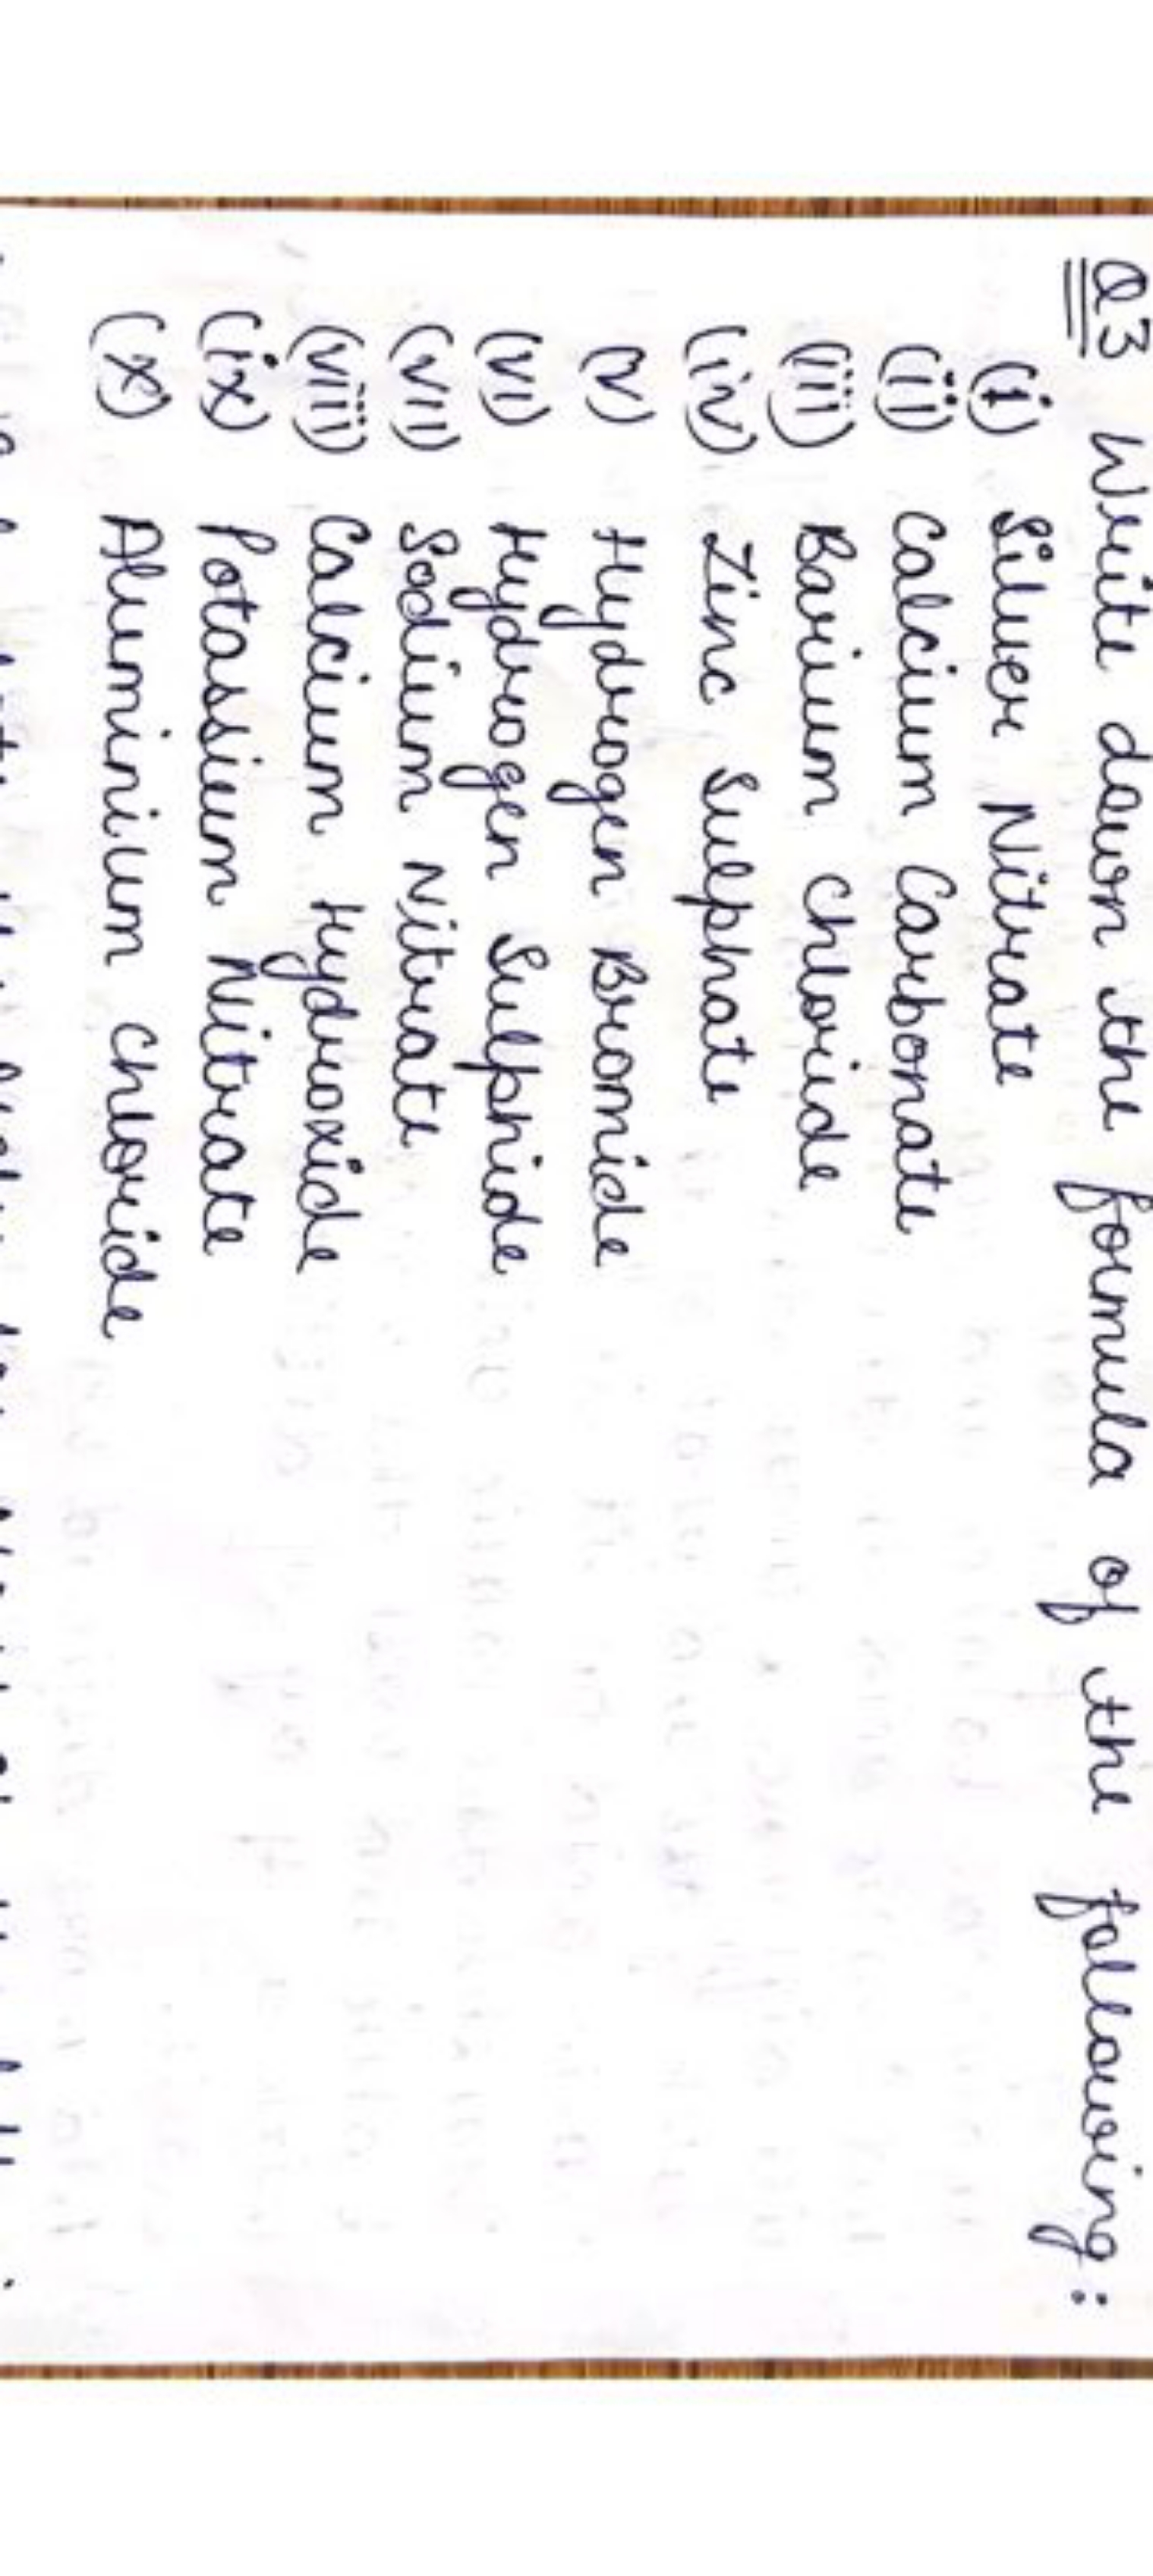 Q3 Write down the formula of the following:
(i) Silver Nitrate
(ii) Calcium Carbonate
(iii) Barium Chloride
(iv) Zinc Sulphate
(v) Hydrogen Bromide
(vi) Hydrogen Sulphide
(vii) Sodium Nitrate
(viii) Calcium Hydroxide
(ix) Potassium Nitrate
(x) Aluminium Chloride